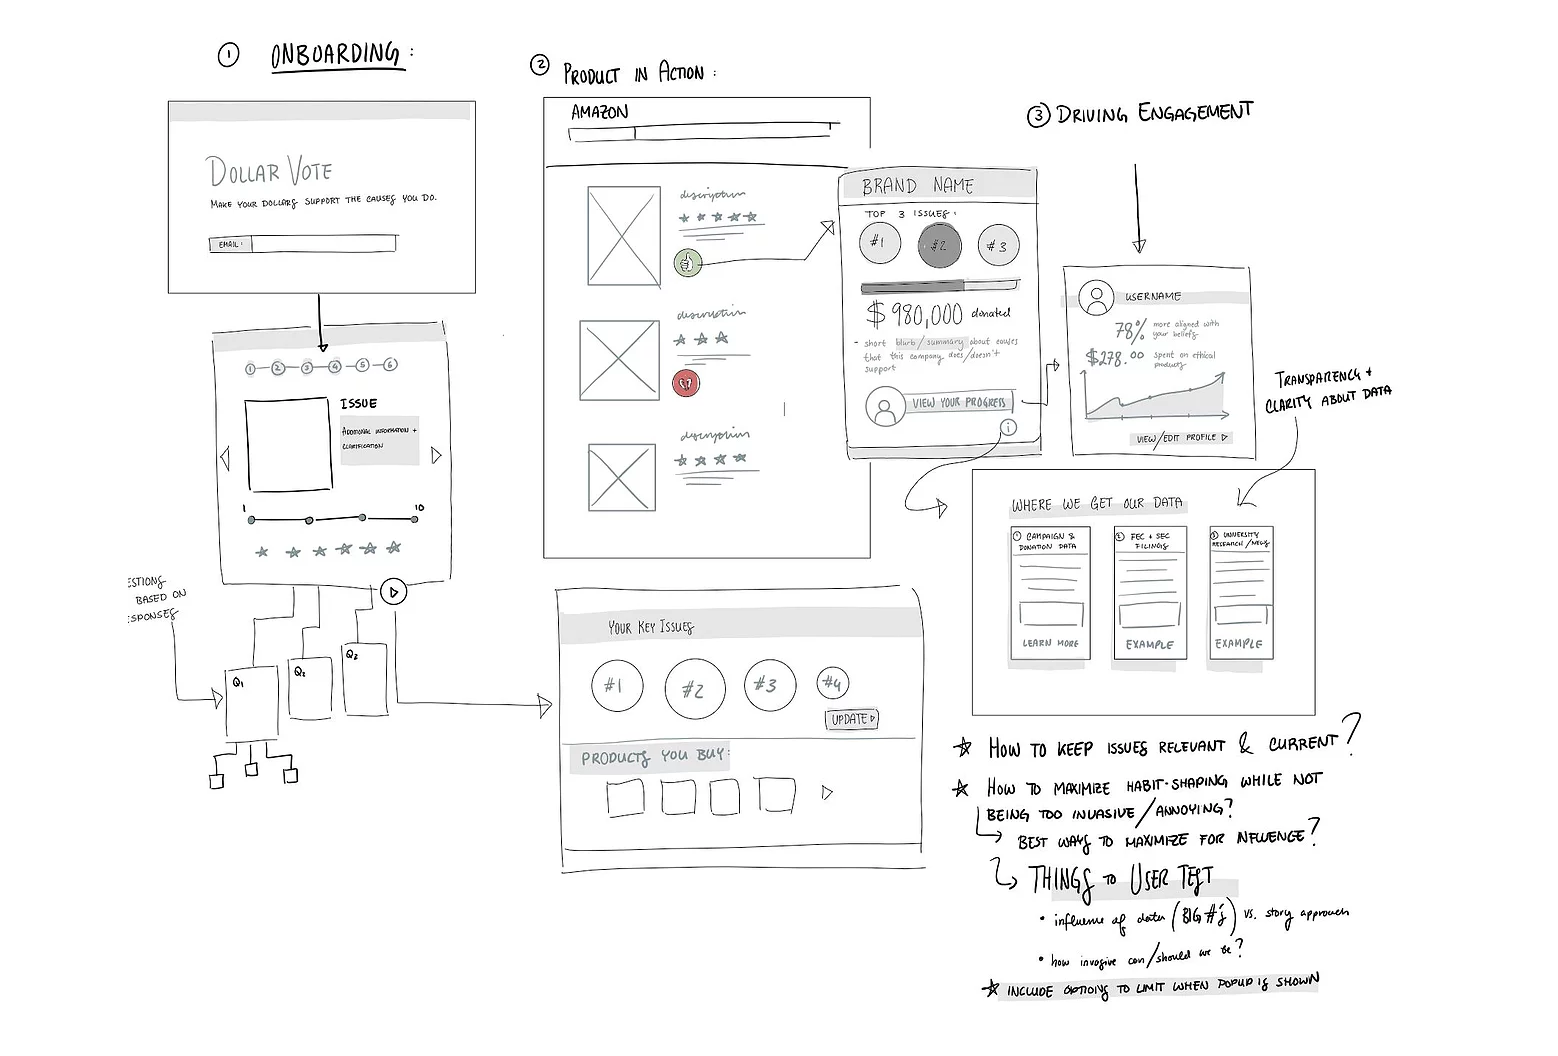 1 ONBOARDING:
DOLLAR VOTE
MAKE YOUR DOLLARS SUPPORT THE CAUSES YOU DO.
EMAIL:
1 2 3 4 5 6
ISSUE
ADDITIONAL INFORMATION +
CLARIFICATION
1 10
ESTIONS
BASED ON
ESPONSES
Q1
Q2
Q3
2 PRODUCT IN ACTION:
AMAZON
description
description
description
BRAND NAME
TOP 3 ISSUES:
#1 #2 #3
$980,000 donated
- short blurb/summary about causes
that this company does/doesn't
support
VIEW YOUR PROGRESS
i
YOUR KEY ISSUES
#1 #2 #3 #4
UPDATE
PRODUCTS YOU BUY:
3 DRIVING ENGAGEMENT
USERNAME
78% more aligned with
your beliefs
$278.00 spent on ethical
products
VIEW/EDIT PROFILE
TRANSPARENCY +
CLARITY ABOUT DATA
WHERE WE GET OUR DATA
1 CAMPAIGN &
DONATION DATA
LEARN MORE
2 FEC + SEC
FILINGS
EXAMPLE
3 UNIVERSITY
RESEARCH/NEWS
EXAMPLE
HOW TO KEEP ISSUES RELEVANT & CURRENT?
HOW TO MAXIMIZE HABIT-SHAPING WHILE NOT
BEING TOO INVASIVE/ANNOYING?
BEST WAYS TO MAXIMIZE FOR INFLUENCE?
THINGS TO USER TEST
• influence of data (BIG #'s) vs. story approach
• how invasive can/should we be?
INCLUDE OPTIONS TO LIMIT WHEN POPUP IS SHOWN